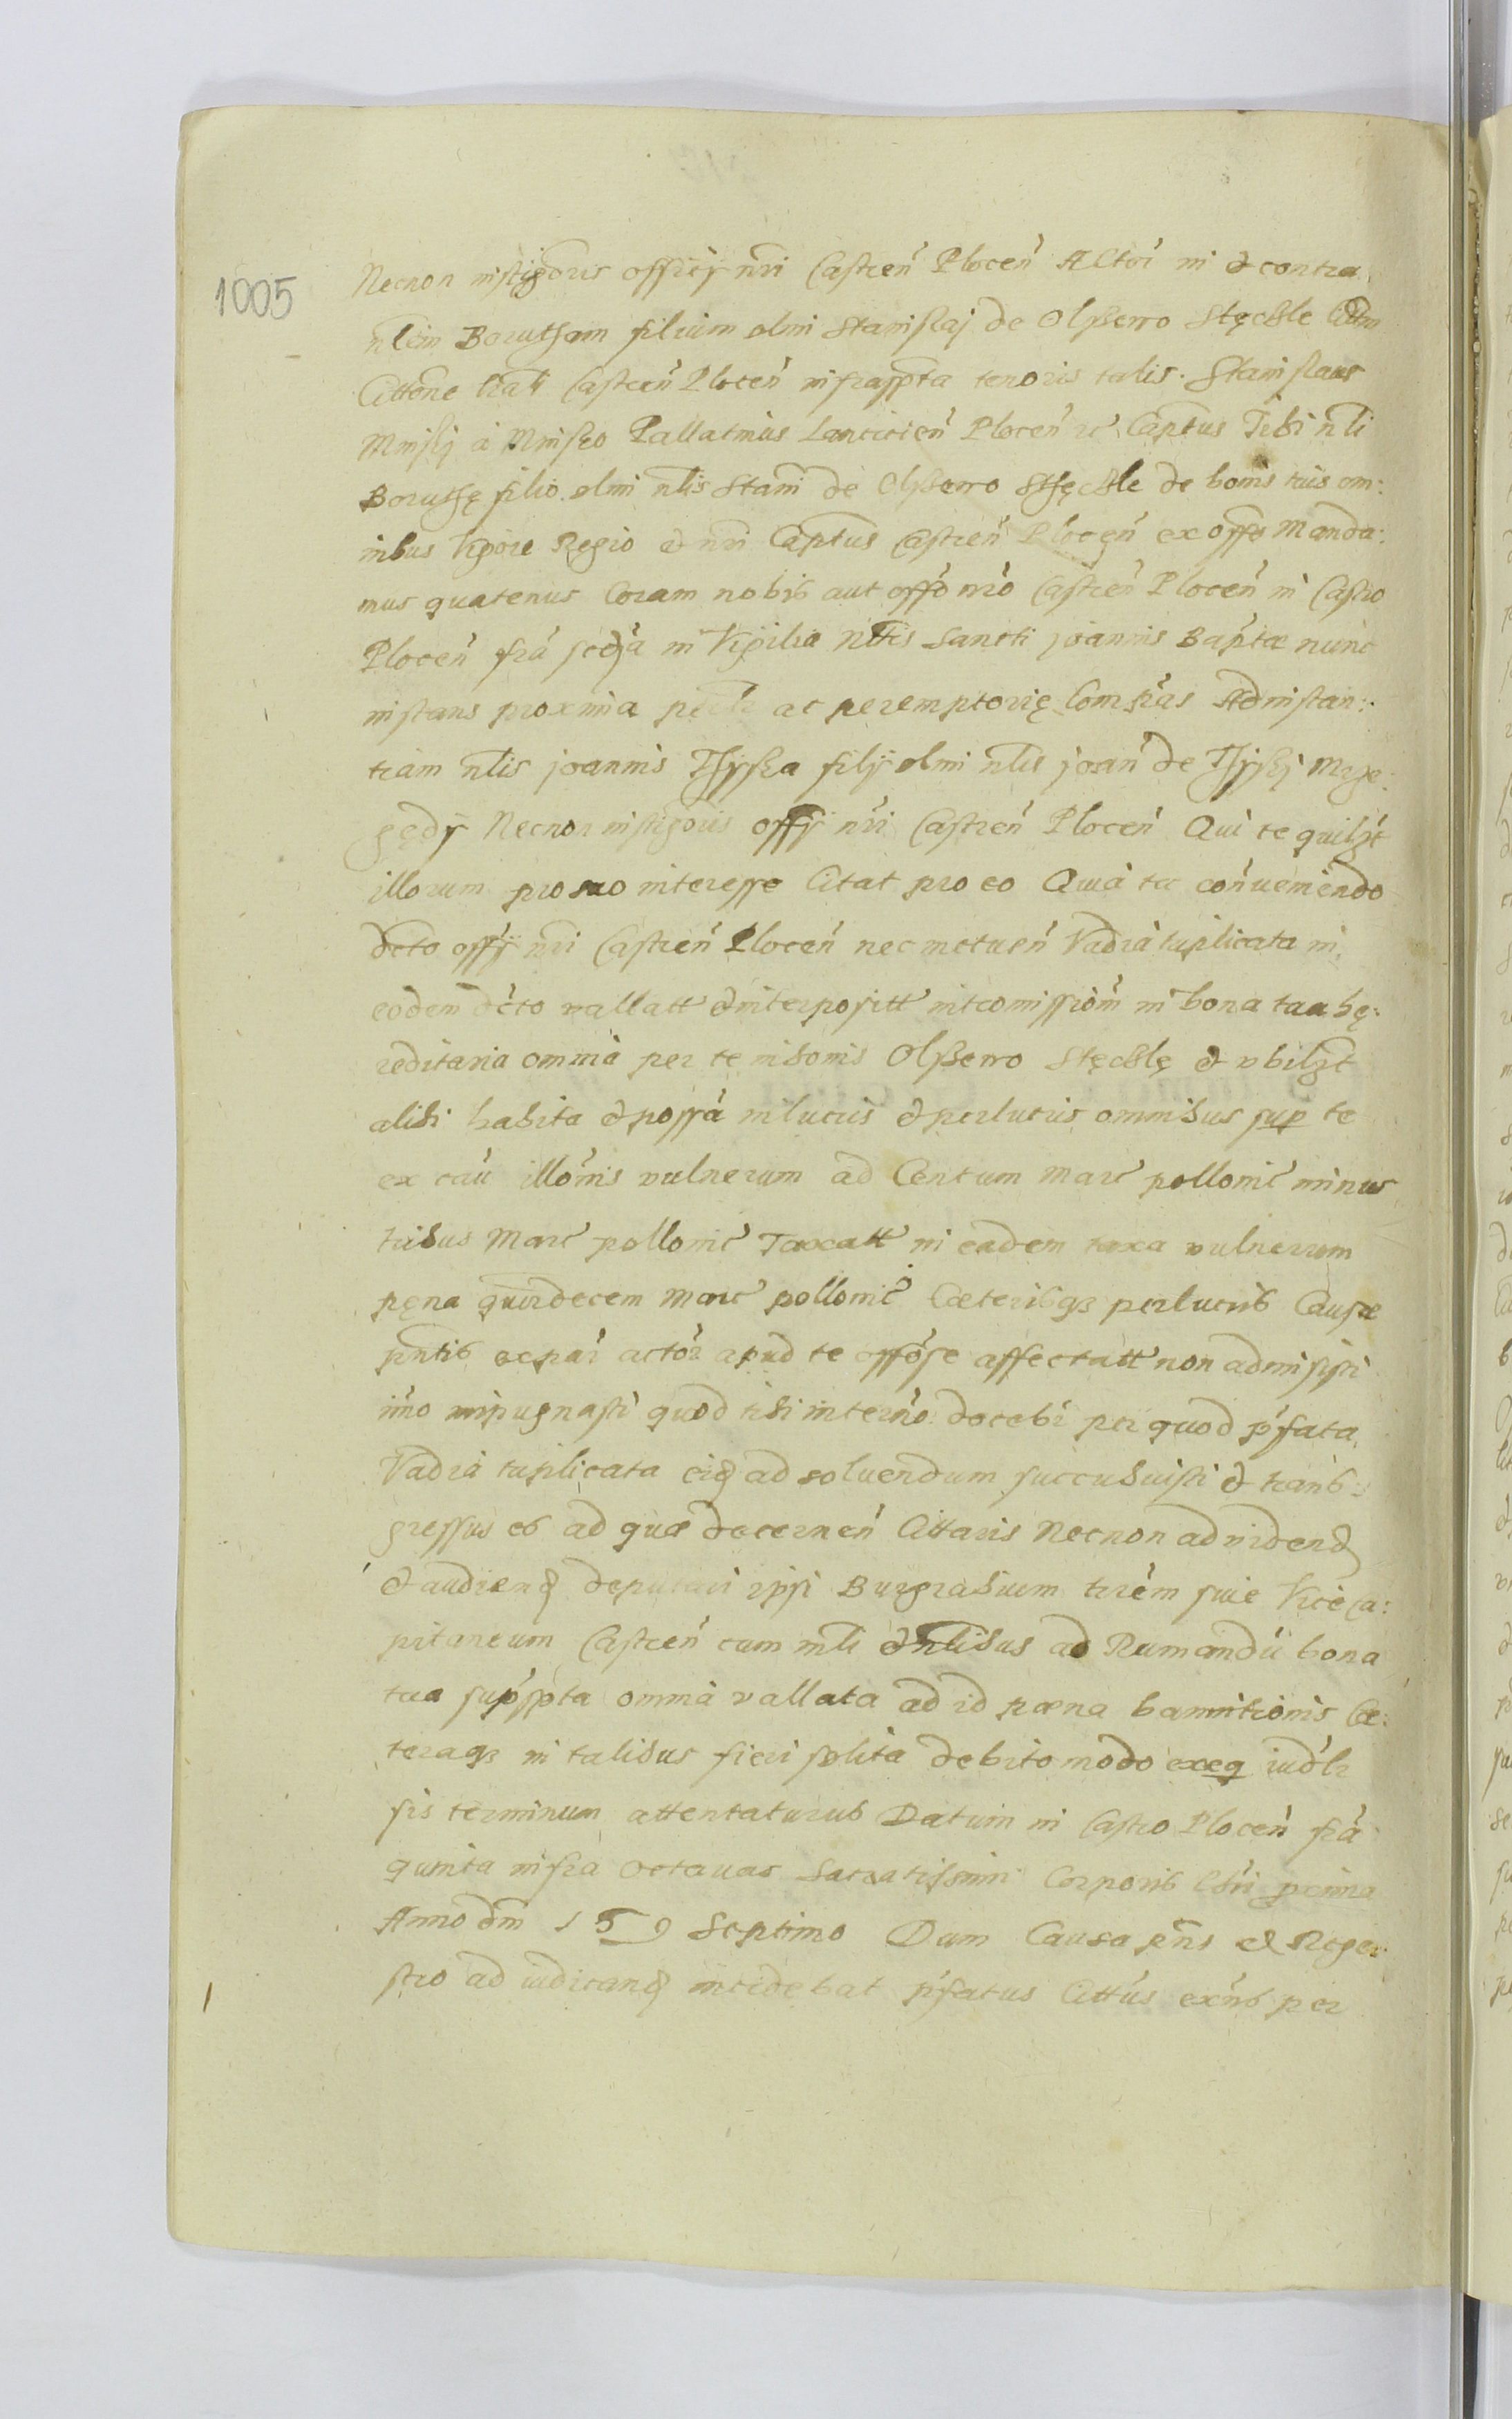 1005
Necnon instigoris officij nri Castren Plocen Actori in & contra
nlem Borutham filium olmi Stanislaj de Olszewo Stęchle Cittm
Cittone trali Castren Plocen infrasspta tenoris talis. Stanislaus
Minskj a Minsko Pallatinus Lancicien Plocen zc Captus Tibi nli
Boruthę filio olmi nlis Stani de Olszewo Sthęchle de bonis tuis om:
nibus Vigore Regio & nri Captus Castren Plocen ex offo Manda:
mus quatenus Coram nobis aut offo nro Castren Plocen in Castro
Plocen fra scda in Vigilia Nttis Sancti joannis Baptae nunc
instans proxima ac peremptorię Compras Ad instan:
tiam nlis joannis Thyska filij olmi nlis joan de Thyskj Mrze:
gędij Necnon instigoris offij nri Castren Plocen Qui te quilzt
illorum pro suo interesse Citat pro eo Quia tu conueniendo
dcto offij nri Castren Plocen nec metuen Vadia tuplicata in
eodem dcto vallatt & interpositt intromissiom in bona tua hę:
reditaria omnia per te in bonis Olszewo Stęchlę & vbilzt
alibi habita & possa in lucris & perlucris omnibus sup te
ex cau illomis vulnerum ad Centum Marc pollonic minus
tribus Marc pollonic Taxatt in eadem taxa vulnerum
pęna quindecem Marc pollonic Caeterisqz perlucris Causae
pntis ex par actor apud te offose affectatt non admisisti
imo inpugnasti quod tibi in terno docebr per quod pfata
Vadia tuplicata eid ad soluendum succubuisti & trans:
gressus es ad quae decernen Cittaris Necnon ad videnð
& audienð deputari ipsi Burgrabium trem siue Viceca:
pitaneum Castren cum mli & nlibus ad Rumandu bona
tua supsspta omnia vallata ad id paena bannitionis Cae:
teraqz in talibus fieri solita debito modo exeq iudlr
sis terminum attentaturus Datum in Castro Plocen fra
quinta infra Octauas Sacratissimi Corporis Chri
Anno dm 159 Septimo Dum Causa pns ex Rege:
stro ad iudicanð incidebat pfatus Cittus exns per